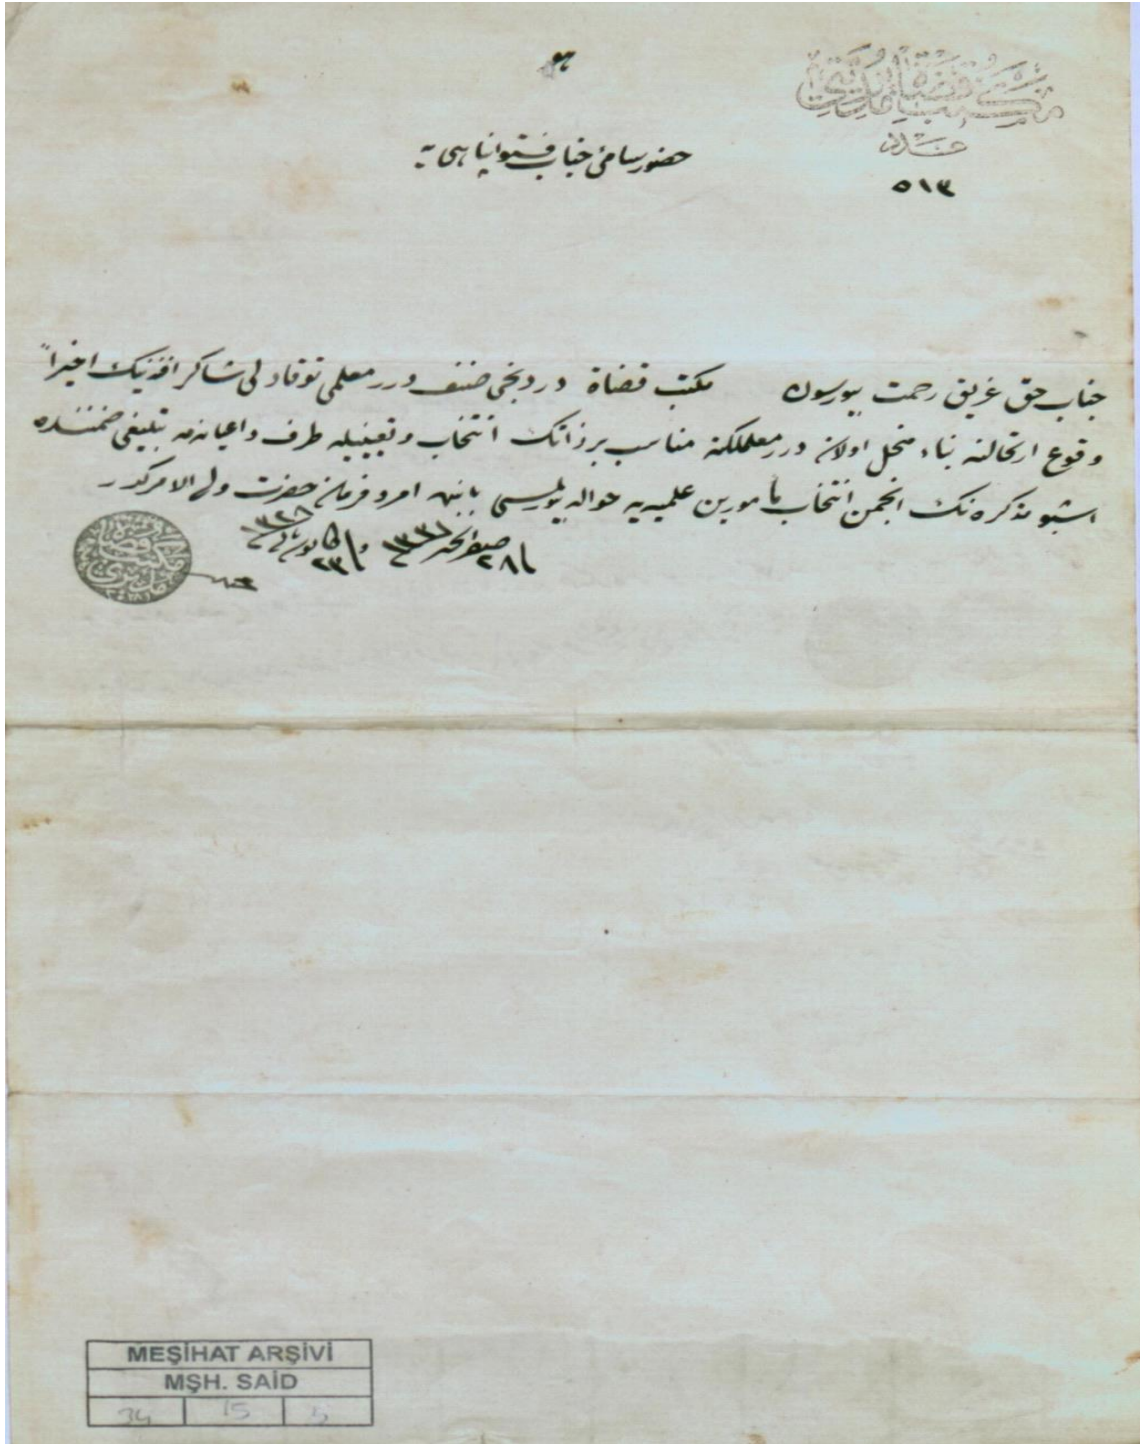 هو
مكتب قضاة مديريتى
عدد
٥١٣
حضور سامئ جناب فتوا پناهى يه
جناب حق غريق رحمت بيورسون مكتب قضاة دردنجى صنف درر معلمى توقادلى شاكر افندينك اخيراً
وقوع ارتحالنه بناء منحل اولان درر معلملكنه مناسب بر ذاتك انتخاب وتعيينيله طرف داعيانه مه تبليغى ضمننده
اشبو تذكره نك انجمن انتخاب مأمورين علميه يه حواله بيورلمسى بابنده امر وفرمان حضرت ولى الامركدر
فى ٢٨ صفر الخير ١٣٣١ وفى ٢٣ كانون ثانى ١٣٢٨
MEŞİHAT ARŞİVİ
MŞH. SAİD
34 15 5